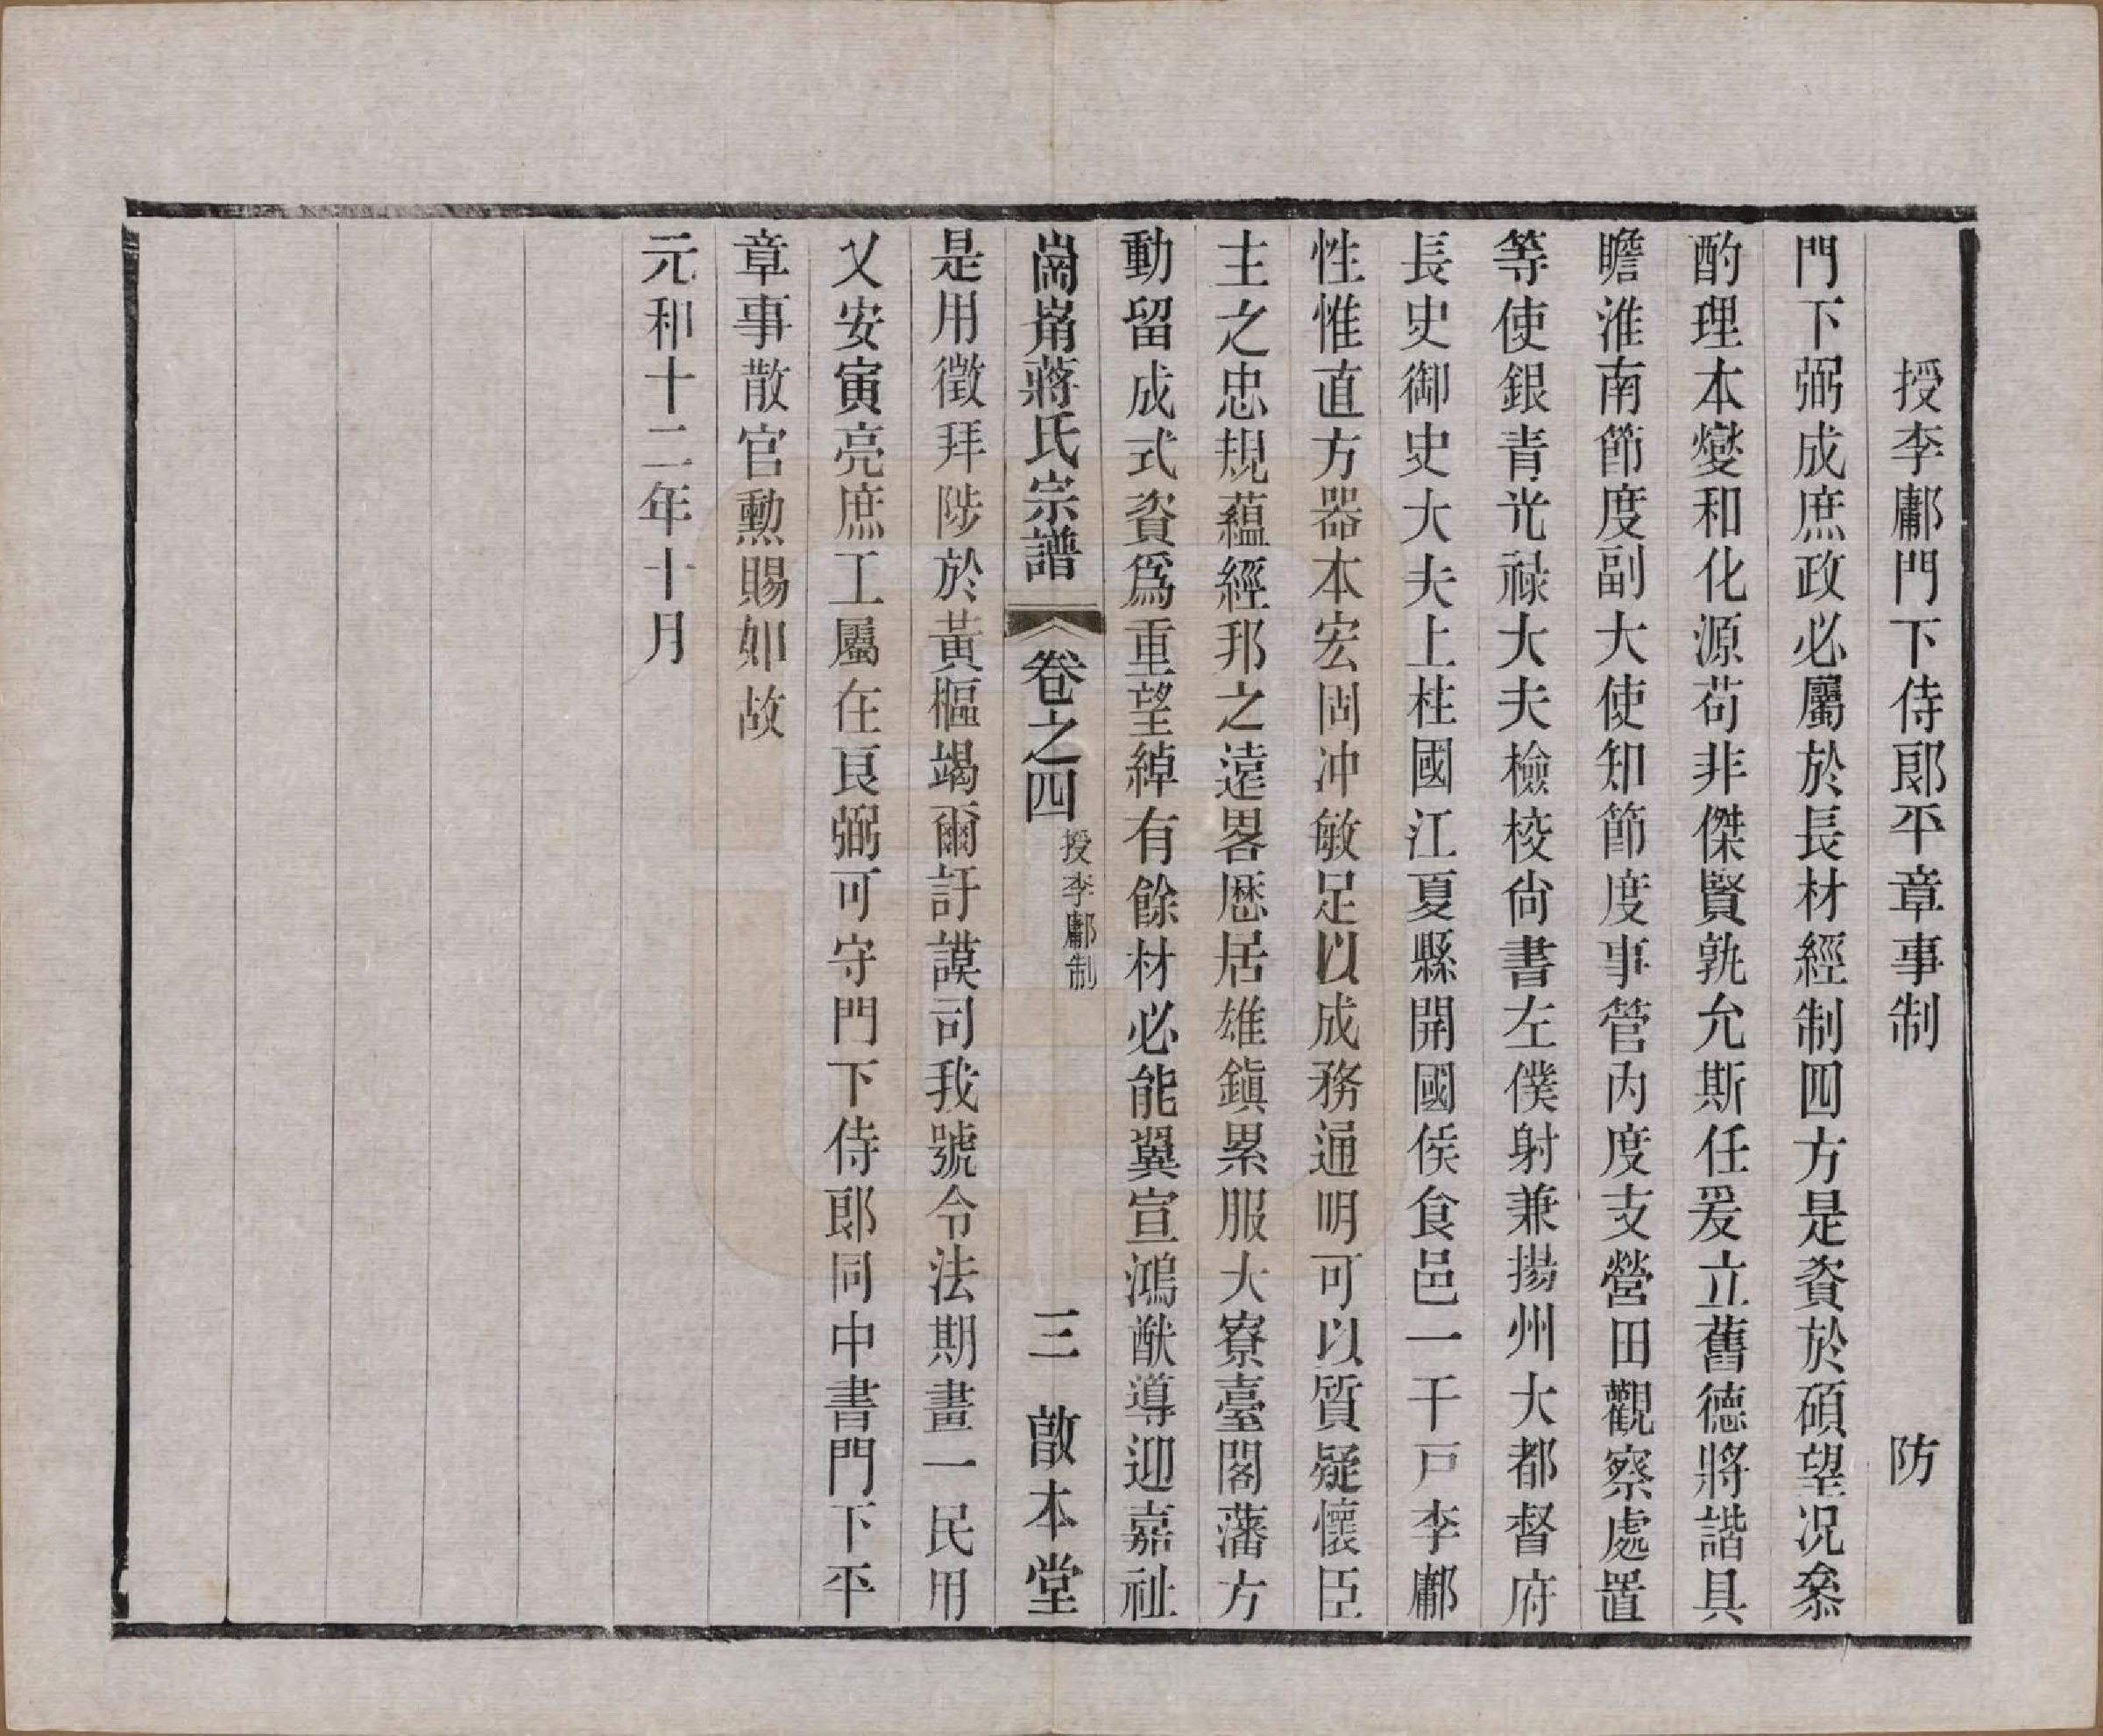 授李鄘門下侍郎平章事制　防
門下弼成庶政必屬於長材經制四方是資於碩望况叅
酌理本燮和化源苟非傑賢孰允斯任爰立舊德將諧具
瞻淮南節度副大使知節度事管内度支營田觀察處置
等使銀青光祿大夫檢校尙書左僕射兼揚州大都督府
長史御史大夫上柱國江夏縣開國侯食邑一千戸李鄘
性惟直方器本宏固冲敏足以成務通明可以質疑懷臣
主之忠規蘊經邦之遠畧歷居雄鎭累服大寮臺閣藩方
動留成式資爲重望綽有餘材必能翼宣鴻猷導迎嘉祉
崗崩蔣氏宗譜　卷之四　授李鄘制　三　啟本堂
是用徵拜陟於黃樞竭爾訏謨司我號令法期畫一民用
乂安寅亮庶工屬在良弼可守門下侍郎同中書門下平
章事散官勲賜如故
元和十二年十月